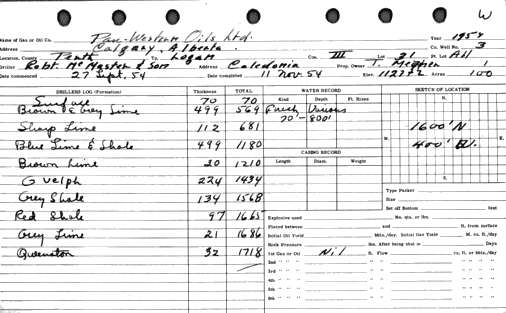 W
Name of Gas or Oil Co. Pan-Western Oils Ltd. Year 1954
Address Calgary, Alberta. Co. Well No. 3
Location, County Perth Tp. Logan Con. III Lot 31 Pt. Lot All
Driller Robt. McMaster & Son Address Caledonia Prop. Owner T. 1
Date commenced 27 Sept. 54 Date completed 11 Nov. 54 Elev. Acres 100
DRILLERS LOG (Formation) Thickness TOTAL WATER RECORD SKETCH OF LOCATION
Surface 70 70 Kind Depth Ft. Rises N.
Brown & Grey Lime 499 569 Fresh Various
20'-800'
Sharp Lime 112 681 1600' N
Blue Lime & Shale 499 1180 CASING RECORD W. 400' E.
Length Diam. Weight
Brown Lime 30 1210
Guelph 224 1434 S.
Type Packer
Grey Shale 134 1568 Size
Set off Bottom feet
Red Shale 97 1665 Explosive used No. qts. or lbs.
Placed between and ft. from surface
Grey Lime 21 1686 Initial Oil Yield bbls./day. Initial Gas Yield M. cu. ft./day
Rock Pressure lbs. After being shut in Days
Queenston 32 1718 1st Gas or Oil Nil ft. Flow Cu. ft. or bbls./day
2nd " " "
3rd " " "
4th " " "
5th " " "
6th " " "